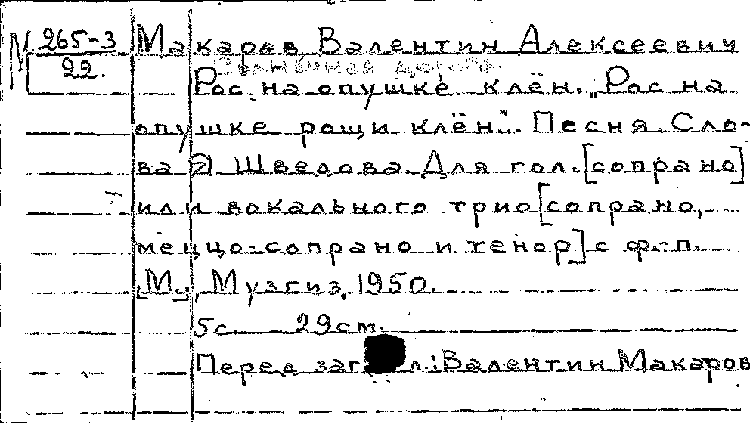 М 265-3
22.
Макаров Валентин Алексеевич
Рос на опушке клён. „Рос на
опушке рощи клён". Песня. Сло-
ва Я Шведова. Для гол. [сопрано]
или вокального трио [сопрано,
меццо-сопрано и тенор] с ф.-п.
[М], Музгиз, 1950.
5с. 29см.
Перед заг л.: Валентин Макаров